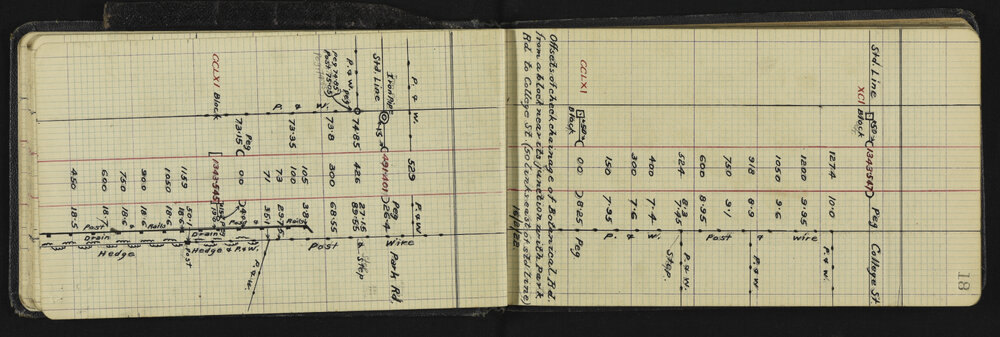 18
Std. Line 50 (1343547) Peg College St.
XCI Block
1274 10·0 P. & W.
1200 9·95 Wire
1050 9·6
918 8·9 & P & W
750 9·1 Post
600 8·95
524 8·3 P & W.
7·45 Stop.
400 7·4 W.
300 7·6 &
150 7·35 P.
CCLXI 50 00 0825 Peg
Block
Offsets of check chainage of Botanical Rd.
from a block near its junction with Park
Rd. to College St. (50 links east of std line)
16/9/22
P. & W. 529 P & W
Iron Pipe ·15 (49H401) Peg 22·4 Park Rd.
Std. Line Wire
P. & W. Peg 74·85 426 27·15 & Stop
89·55
Peg 74·65
Post 75·05
W. 73·8 300 68·55 Post
& 73·35 105 38·4
P. 100 Rails
73 29·75
71 35·1 P. & W.
Peg 73·15 00 & Post Hedge & P. & W.
CCLXI Block [1343545] Drain
1159 50·1 Post
18·6
1050 18·6 Rails
900 18·6
750 18·6 &
600 18·7 Post Hedge
450 18·5 Drain